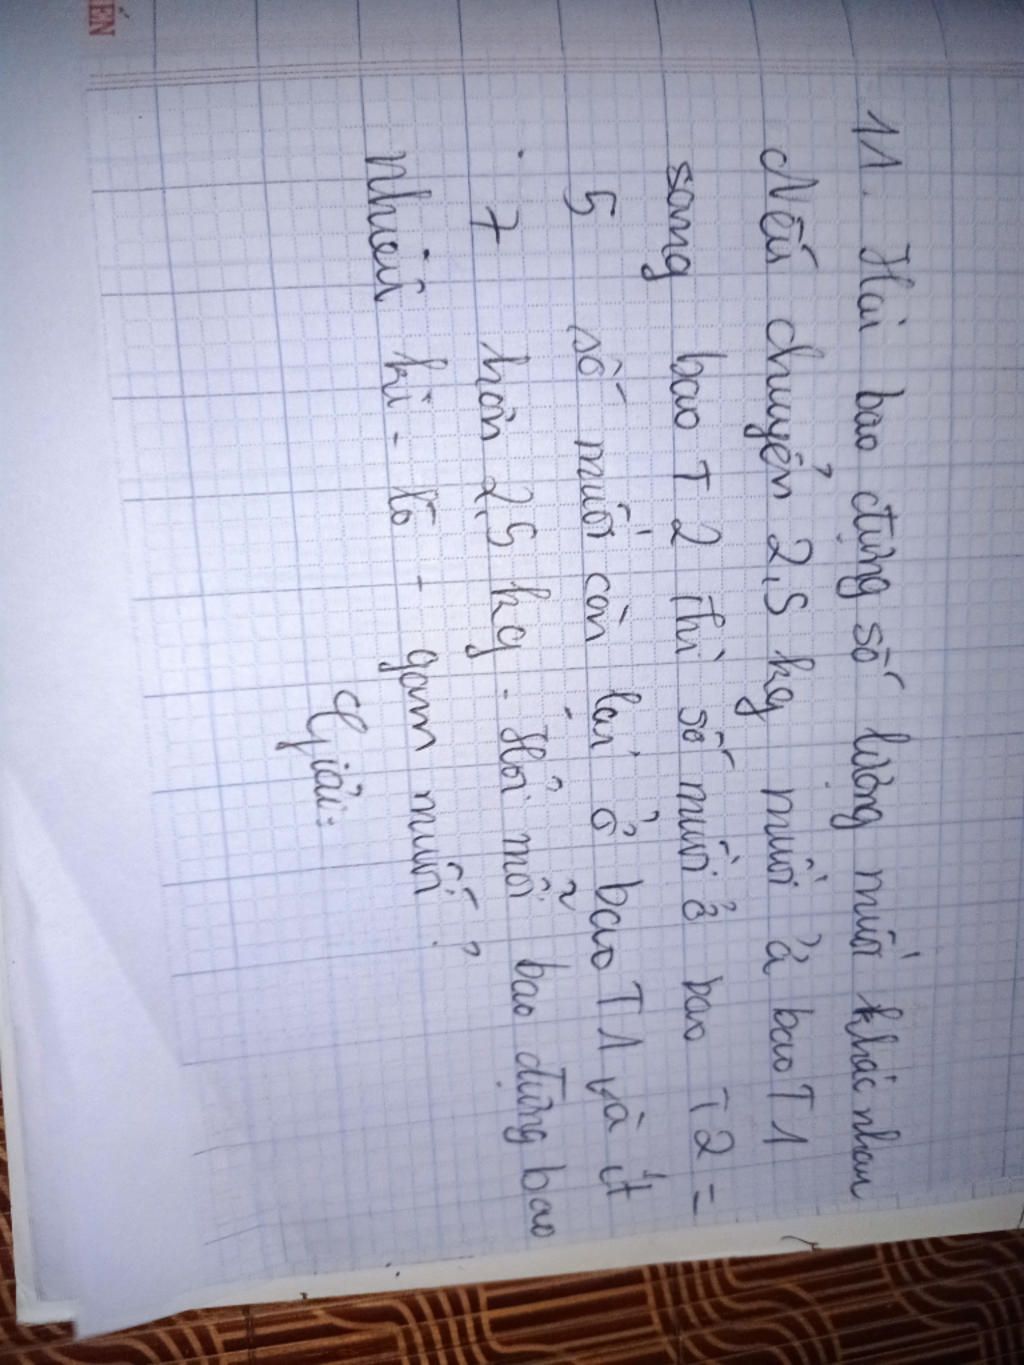 ẾN
11. Hai bao đựng số lượng muối khác nhau
Nếu chuyển 2,5 kg muối ở bao T1
sang bao T2 thì số muối ở bao T2 =
5 số muối còn lại ở bao T1 và ít
7 hơn 2,5 kg. Hỏi mỗi bao đựng bao
nhiêu ki-lô-gam muối?
Giải: